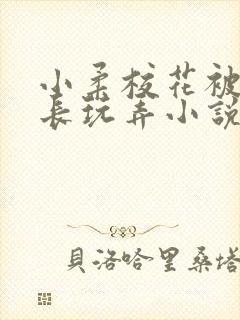 小柔校花被
長玩弄小說
貝洛哈里桑塔